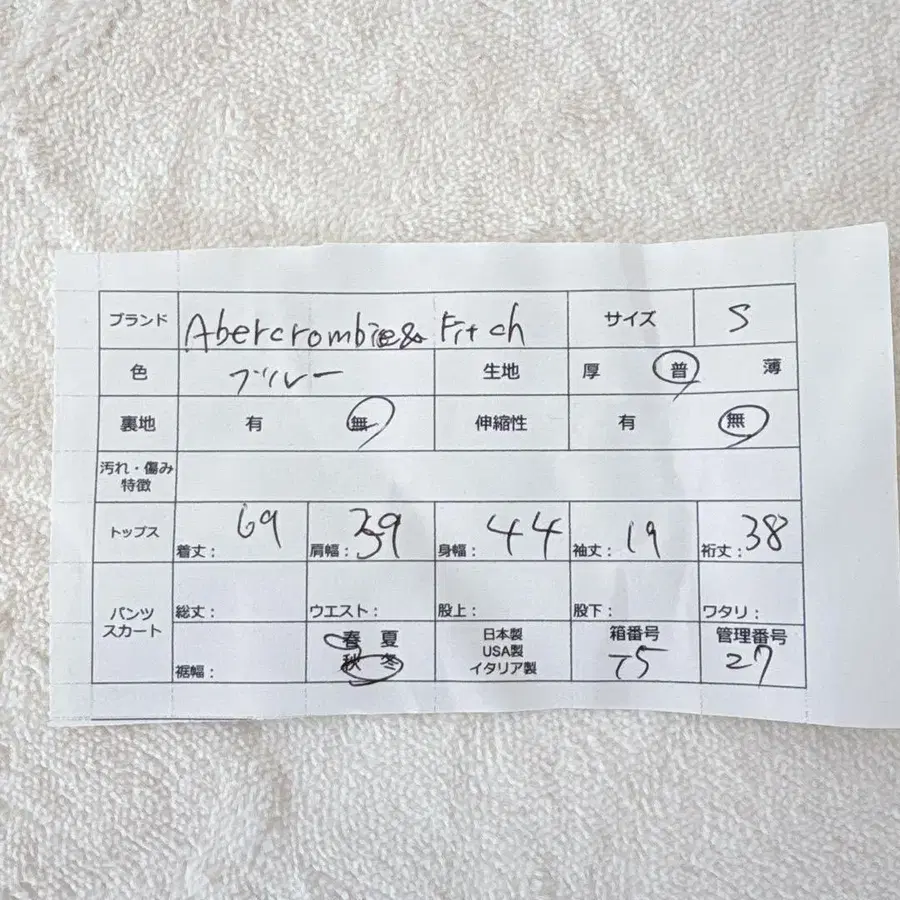 ブランド Abercrombie & Fitch サイズ S
色 ブルー 生地 厚 普 薄
裏地 有 無 伸縮性 有 無
汚れ・傷み
特徴
トップス 着丈： 69 肩幅： 39 身幅： 44 袖丈： 19 裄丈： 38
パンツ
スカート 総丈： ウエスト： 股上： 股下： ワタリ：
裾幅： 春 夏
秋 冬
日本製
USA製
イタリア製
箱番号
75
管理番号
27